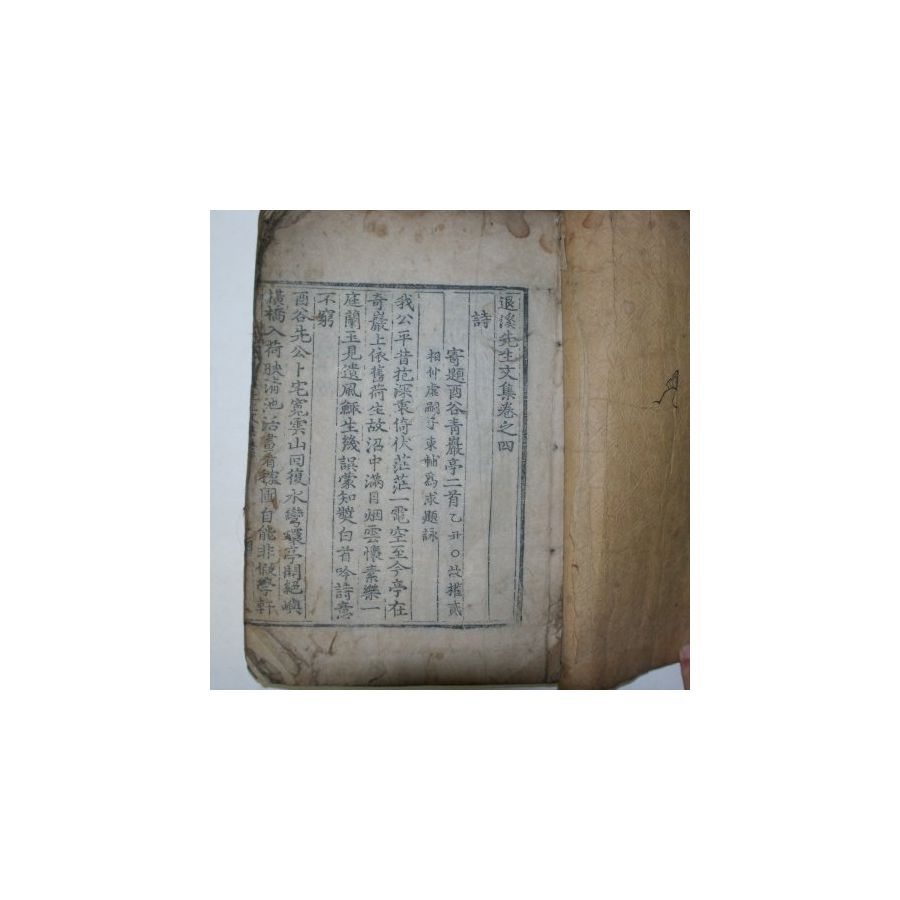 退溪先生文集卷之四
詩
寄題酉谷青巖亭二首 乙丑○故權貳
相仲虛嗣子東輔爲求題詠
我公平昔抱深衷倚伏茫茫一電空至今亭在
奇巖上依舊荷生故沼中滿目烟雲懷素樂一
庭蘭玉見遺風鯫生幾誤蒙知奬白首吟詩意
不窮
酉谷先公卜宅寬雲山回復水彎環亭開絕嶼
橫橋入荷映淸池活畫看稼圃自能非假學軒